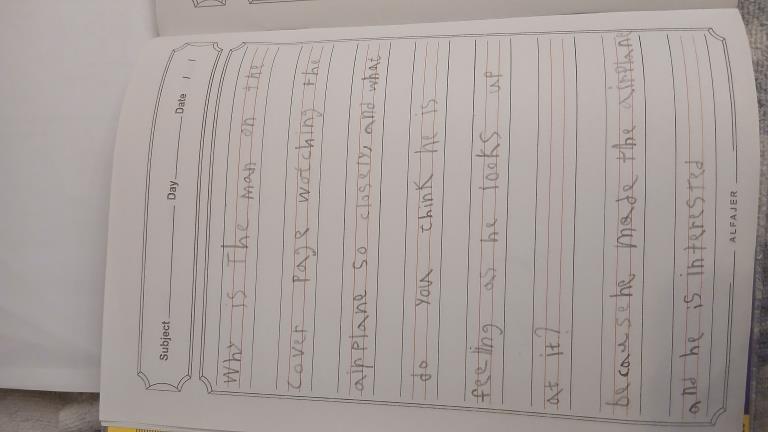 Subject Day Date / /
Why is The man on the
cover page watching the
airplane so closely, and what
do you think he is
feeling as he looks up
at it?
because he made the airplane
and he is interested
ALFAJER